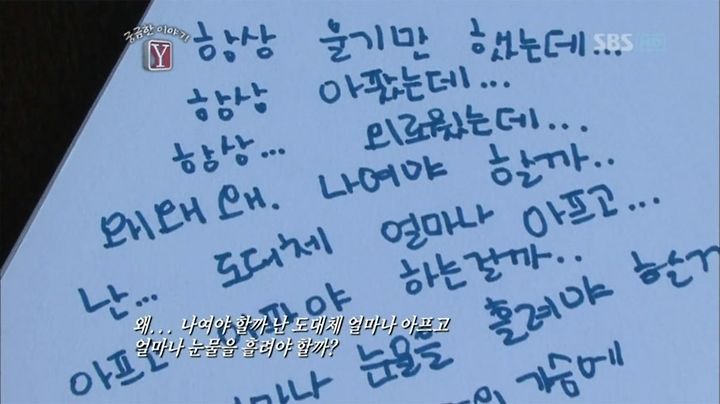 궁금한 이야기
Y
SBS HD
항상 울기만 했는데...
항상 아팠는데...
항상... 외로웠는데...
왜왜왜. 나여야 할까..
난... 도대체 얼마나 아프고...
아프고 아파야 하는걸까..
얼마나 눈물을 흘려야 할까
가슴에
왜... 나여야 할까 난 도대체 얼마나 아프고
얼마나 눈물을 흘려야 할까?